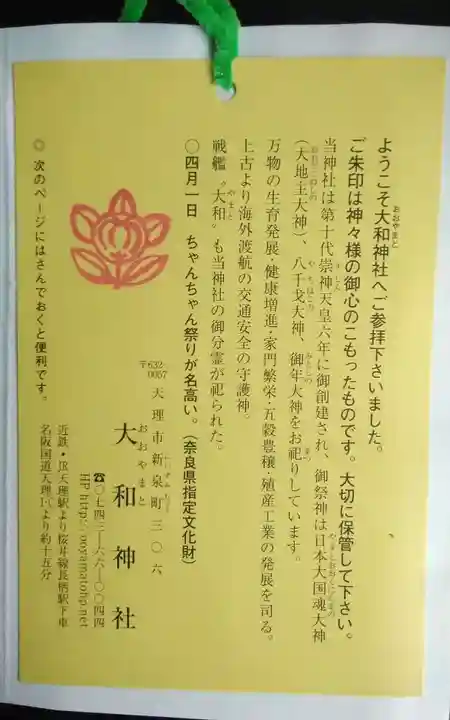 ようこそ大和神社へご参拝下さいました。
ご朱印は神々様の御心のこもったものです。大切に保管して下さい。
当神社は第十代崇神天皇六年に御創建され、御祭神は日本大国魂大神
(大地主大神)、八千戈大神、御年大神をお祀りしています。
万物の生育発展・健康増進・家門繁栄・五穀豊穣・殖産工業の発展を司る。
上古より海外渡航の交通安全の守護神。
戦艦〝大和〟も当神社の御分霊が祀られた。
〇四月一日 ちゃんちゃん祭りが名高い。(奈良県指定文化財)
〒632-0057 天理市新泉町三〇六
大和神社
おおやまと
☎〇七四三-六六-〇〇四四
HP http://ooyamatohp.net
近鉄・JR天理駅より桜井線長柄駅下車
名阪国道天理I.Cより約十五分
◎次のページにはさんでおくと便利です。